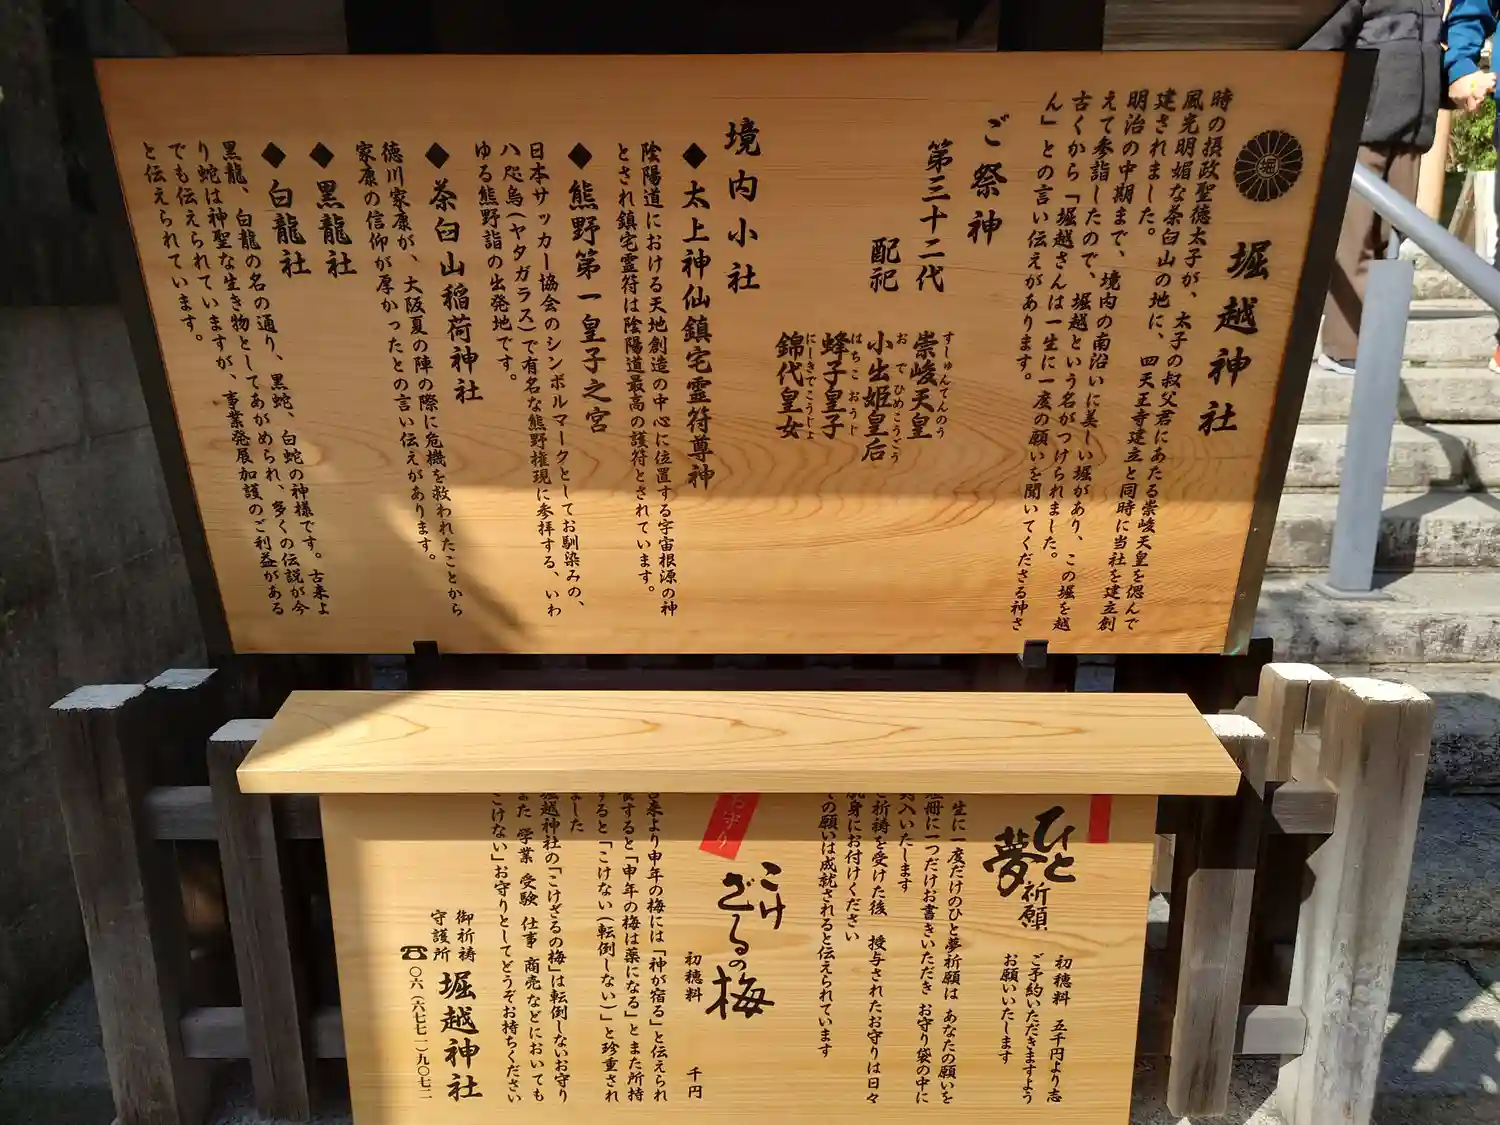 堀
堀越神社
時の摂政聖徳太子が、太子の叔父君にあたる崇峻天皇を偲んで
風光明媚な茶臼山の地に、四天王寺建立と同時に当社を建立創
建されました。
明治の中期まで、境内の南沿いに美しい堀があり、この堀を越
えて参詣したので、堀越という名がつけられました。
古くから「堀越さんは一生に一度の願いを聞いてくださる神さ
ん」との言い伝えがあります。
ご祭神
第三十二代 崇峻天皇
すしゅんてんのう
配祀 小出姫皇后
おでひめこうごう
蜂子皇子
はちこおうじ
錦代皇女
にしきでこうじょ
境内小社
◆太上神仙鎮宅霊符尊神
陰陽道における天地創造の中心に位置する宇宙根源の神
とされ鎮宅霊符は陰陽道最高の護符とされています。
◆熊野第一皇子之宮
日本サッカー協会のシンボルマークとしてお馴染みの、
八咫烏(ヤタガラス)で有名な熊野権現に参拝する、いわ
ゆる熊野詣の出発地です。
◆茶臼山稲荷神社
徳川家康が、大阪夏の陣の際に危機を救われたことから
家康の信仰が厚かったとの言い伝えがあります。
◆黒龍社
◆白龍社
黒龍、白龍の名の通り、黒蛇、白蛇の神様です。古来よ
り蛇は神聖な生き物としてあがめられ、多くの伝説が今
でも伝えられていますが、事業発展加護のご利益がある
と伝えられています。
ひと夢祈願
初穂料 五千円より志
ご予約いただきますよう
お願いいたします
生に一度だけのひと夢祈願は あなたの願いを
冊に一つだけお書きいただき お守り袋の中に
入いたします
ご祈祷を受けた後 授与されたお守りは日々
身にお付けください
の願いは成就されると伝えられています
お守り
こけざるの梅
初穂料 千円
古来より申年の梅には「神が宿る」と伝えられ
すると「申年の梅は薬になる」とまた所持
すると「こけない(転倒しない)」と珍重され
ました
堀越神社の「こけざるの梅」は転倒しないお守り
また 学業 受験 仕事 商売などにおいても
こけない」お守りとしてどうぞお持ちください
御祈祷
守護所
堀越神社
☎〇六(六七七一)九〇七二